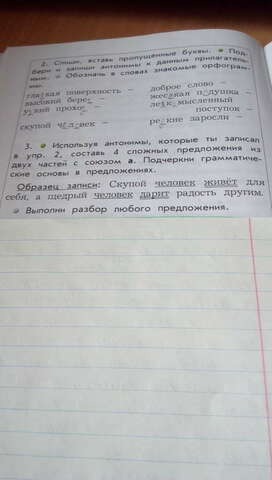 2. Спиши, вставь пропущенные буквы. Под-
бери и запиши антонимы к данным прилагатель-
ным. Обозначь в словах знакомые орфограм-
мы.
гладкая поверхность –
высокий берег –
узкий проход –
скупой человек –
доброе слово –
жёсткая подушка –
легкомысленный
поступок –
редкие заросли –
3. Используя антонимы, которые ты записал
в упр. 2, составь 4 сложных предложения из
двух частей с союзом а. Подчеркни грамматиче-
ские основы в предложениях.
Образец записи: Скупой человек живёт для
себя, а щедрый человек дарит радость другим.
Выполни разбор любого предложения.